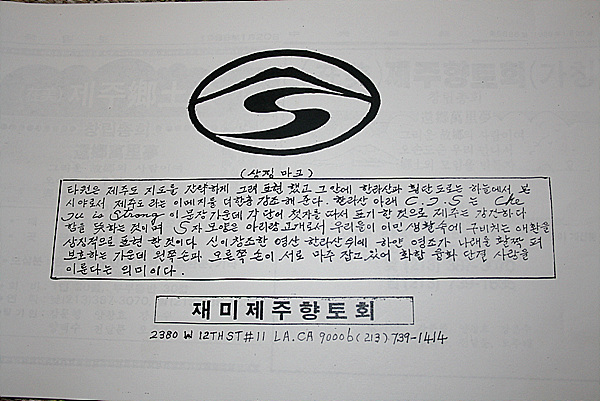 (상징 마크)
타원은 제주도 지도를 간략하게 그려 표현 했고 그 안에 한라산과 횡단도로는 하늘에서 본
시야로서 제주도 라는 이메지를 더한층 강조 해 준다. 한라산 아래 C.J.S 는 Che
Ju is Strong 이 문장가운데 각 단어 첫자를 따서 표기 한 것으로 제주는 강하다
함을 뜻하는 것이며 S자 모양은 아리랑고개로서 우리들이 이민 생활속에 구비치는 애환을
상징적으로 표현 한 것이다. 신이 창조한 영산 한라산 위에 하얀 영조가 나래를 활짝 펴
보호하는 가운데 왼쪽 손과 오른쪽 손이 서로 마주 잡고 있어 화합 융화 단결 사랑을
이룬다는 의미이다.
재미제주향토회
2380 W 12TH ST #11 LA. CA 90006 (213) 739-1414